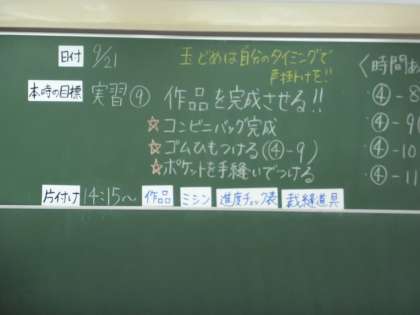 日付 9/21
玉どめは自分のタイミングで
声掛けを!!
本時の目標 実習④ 作品を完成させる!!
☆コンビニバッグ完成
☆ゴムひもつける(④-9)
☆ポケットを手縫いでつける
片付け 14:15～ 作品 ミシン 進度チェック表 裁縫道具
〈時間あ
④-8
④-9(
④-10
④-11